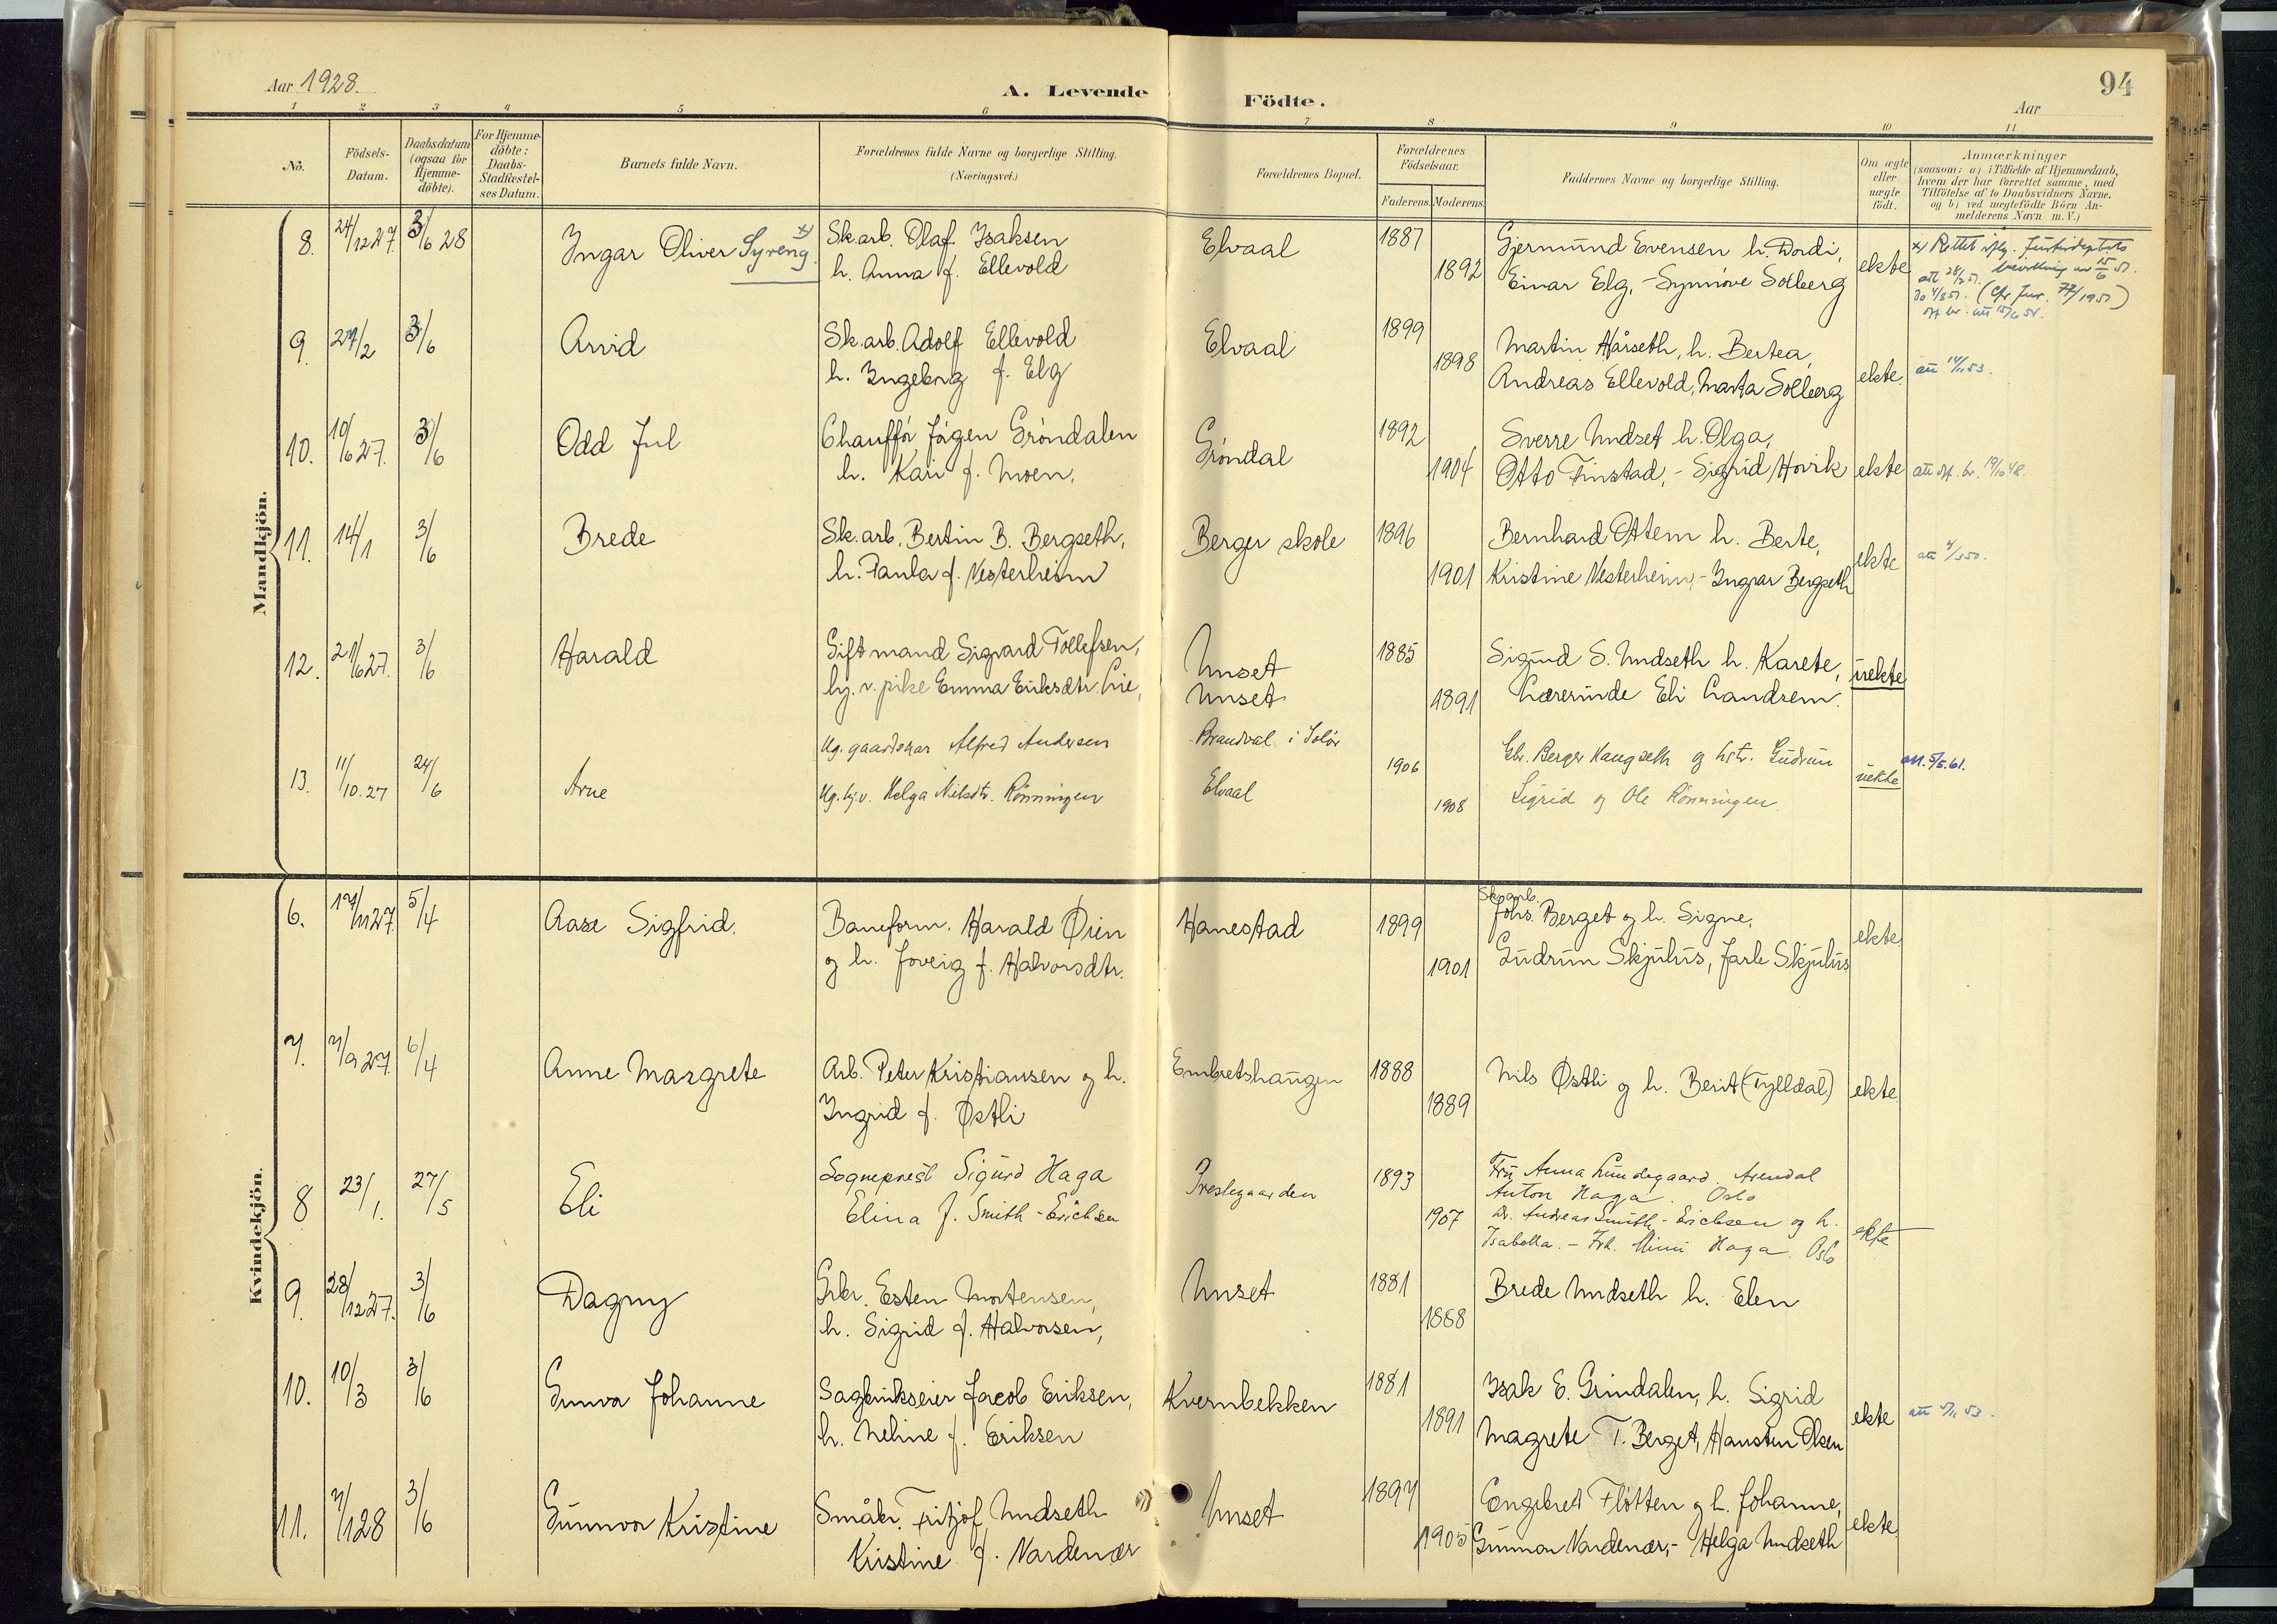 Aar 1928.
A. Levende Födte.
Aar
94
1 2 3 4 5 6 7 8 9 10 11
No.
Födsels-Datum.
Daabsdatum (ogsaa for Hjemme-döbte).
For Hjemme-döbte: Daabs-Stadfæstel-ses Datum.
Barnets fulde Navn.
Forældrenes fulde Navne og borgerlige Stilling.
(Næringsvei.)
Forældrenes Bopæl.
Forældrenes Födselsaar.
Faderens. Moderens.
Faddernes Navne og borgerlige Stilling.
Om ægte eller uægte födt.
Anmærkninger
(saasom: a) i Tilfælde af Hjemmedaab,
hvem der har forrettet samme, med
Tilföielse af to Daabsvidners Navne.
og b) ved uægtefödte Börn An-
melderens Navn m. V.)
Mandkjön.
8. 24/12 27. 3/6 28 Ingar Oliver Syreng x) Sk.arb. Olaf Isaksen Elvaal 1887 Gjermund Evensen h. Dordi,
h. Anna f. Ellevold 1892 Einar Elg, - Synnöve Solberg ekte
x) Rettet iflg. Justisdeptets
bevilling av 15/6 51.
att 28/2 51.
do 4/8 51. (Cfr Jur. 77/1951)
9. 27/2 3/6 Arvid Sk.arb. Adolf Ellevold Elvaal 1899 Martin Hårseth, h. Bertea,
h. Ingeborg f. Elg 1898 Andreas Ellevold, Marta Solberg ekte. att 14/11 53.
10. 10/6 27. 3/6 Odd Jul Chauffør Jögen Gröndalen Gröndal 1892 Sverre Undset h. Olga,
h. Kari f. Moen, 1904 Otto Finstad, - Sigrid Hovik ekte att off. br. 19/10 48.
11. 14/1 3/6 Brede Sk.arb. Bertin B. Bergseth, Berger skole 1896 Bernhard Ottem h. Berte,
h. Paula f. Vesterheim 1901 Kristine Vesterheim, - Ingvar Bergseth ekte att 4/3 50.
12. 21/6 27. 3/6 Harald Gift mand Sigvard Tollefsen, Unset 1885 Sigurd S. Undseth h. Karete, uekte
hj. v. pike Emma Eriksdtr. Lie, Unset 1891 Lærerinde Eli Landsem.
13. 11/10.27 24/6 Arne Ug. gaardskar Alfred Andersen Brandval i Solör 1906 Gbr. Berger Haugseth og hstr. Gudrun uekte att. 5/5.61.
Ug. hj.v. Helga Nilsdtr. Rönningen Elvaal 1908 Sigrid og Ole Rönningen.
Kvindekjön.
6. 17/11 27. 5/4 Aase Sigfrid. Baneform. Harald Øien Hanestad 1899 Skogarb. Johs. Berget og h. Signe,
og h. Joveig f. Halvorsdtr. 1901 Gudrun Skjulhus, Jarle Skjulhus ekte
7. 7/9 27. 6/4 Anne Margrete Arb. Peter Kristiansen og h. Embretshaugen 1888 Nils Østli og h. Berit (Tylldal) ekte.
Ingrid f. Østli 1889
8 23/1. 27/5 Eli Sogneprest Sigurd Haga Prestegaarden 1893 Fru Anna Lundegaard. Arendal
Elina f. Smith-Erichsen 1907 Anton Haga. Oslo
Dr. Andreas Smith-Erichsen og h.
Isabella. - Frk. Mimi Haga. Oslo ekte
9. 28/12 27. 3/6 Dagny Grbr. Esten Mortensen, Unset 1881 Brede Undseth h. Elen
h. Sigrid f. Halvorsen, 1888
10. 10/3 3/6 Gunvor Johanne Sagbrukseier Jacob Eriksen, Kvernbekken 1881 Isak E. Grindalen, h. Sigrid
h. Neline f. Eriksen 1891 Magrete T. Berget, Hansten Olsen ekte
11. 7/1 28 3/6 Gunnvor Kristine Småbr. Fritjof Undseth Unset 1897 Engebret Flötten og h. Johanne,
Kristine f. Vardenær 1905 Gunnar Vardenær, - Helga Undseth ekte